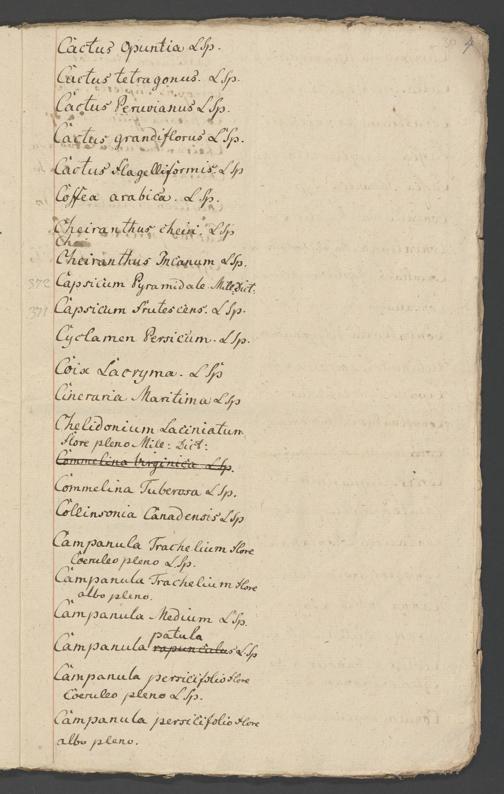 4
Cactus Opuntia L Sp.
Cactus tetragonus. L Sp.
Cactus Peruvianus L Sp.
Cactus grandiflorus L Sp.
Cactus flagelliformis L Sp
Coffea arabica. L Sp.
Cheiranthus cheiri. L Sp
Che
Cheiranthus Incanum L Sp.
372 Capsicum Pyramidale Mill Dict:
371 Capsicum frutescens. L Sp.
Cyclamen Persicum. L Sp.
Coix Lacryma. L Sp
Cineraria Maritima L Sp
Chelidonium Laciniatum
flore pleno Mill: Dict:
Commelina Virginica L Sp.
Commelina Tuberosa L Sp.
Collinsonia Canadensis L Sp
Campanula Trachelium flore
Coeruleo pleno L Sp.
Campanula Trachelium flore
albo pleno.
Campanula Medium L Sp.
patula
Campanula rapunculus L Sp
Campanula persicifolio flore
Coeruleo pleno L Sp.
Campanula persicifolio flore
albo pleno.